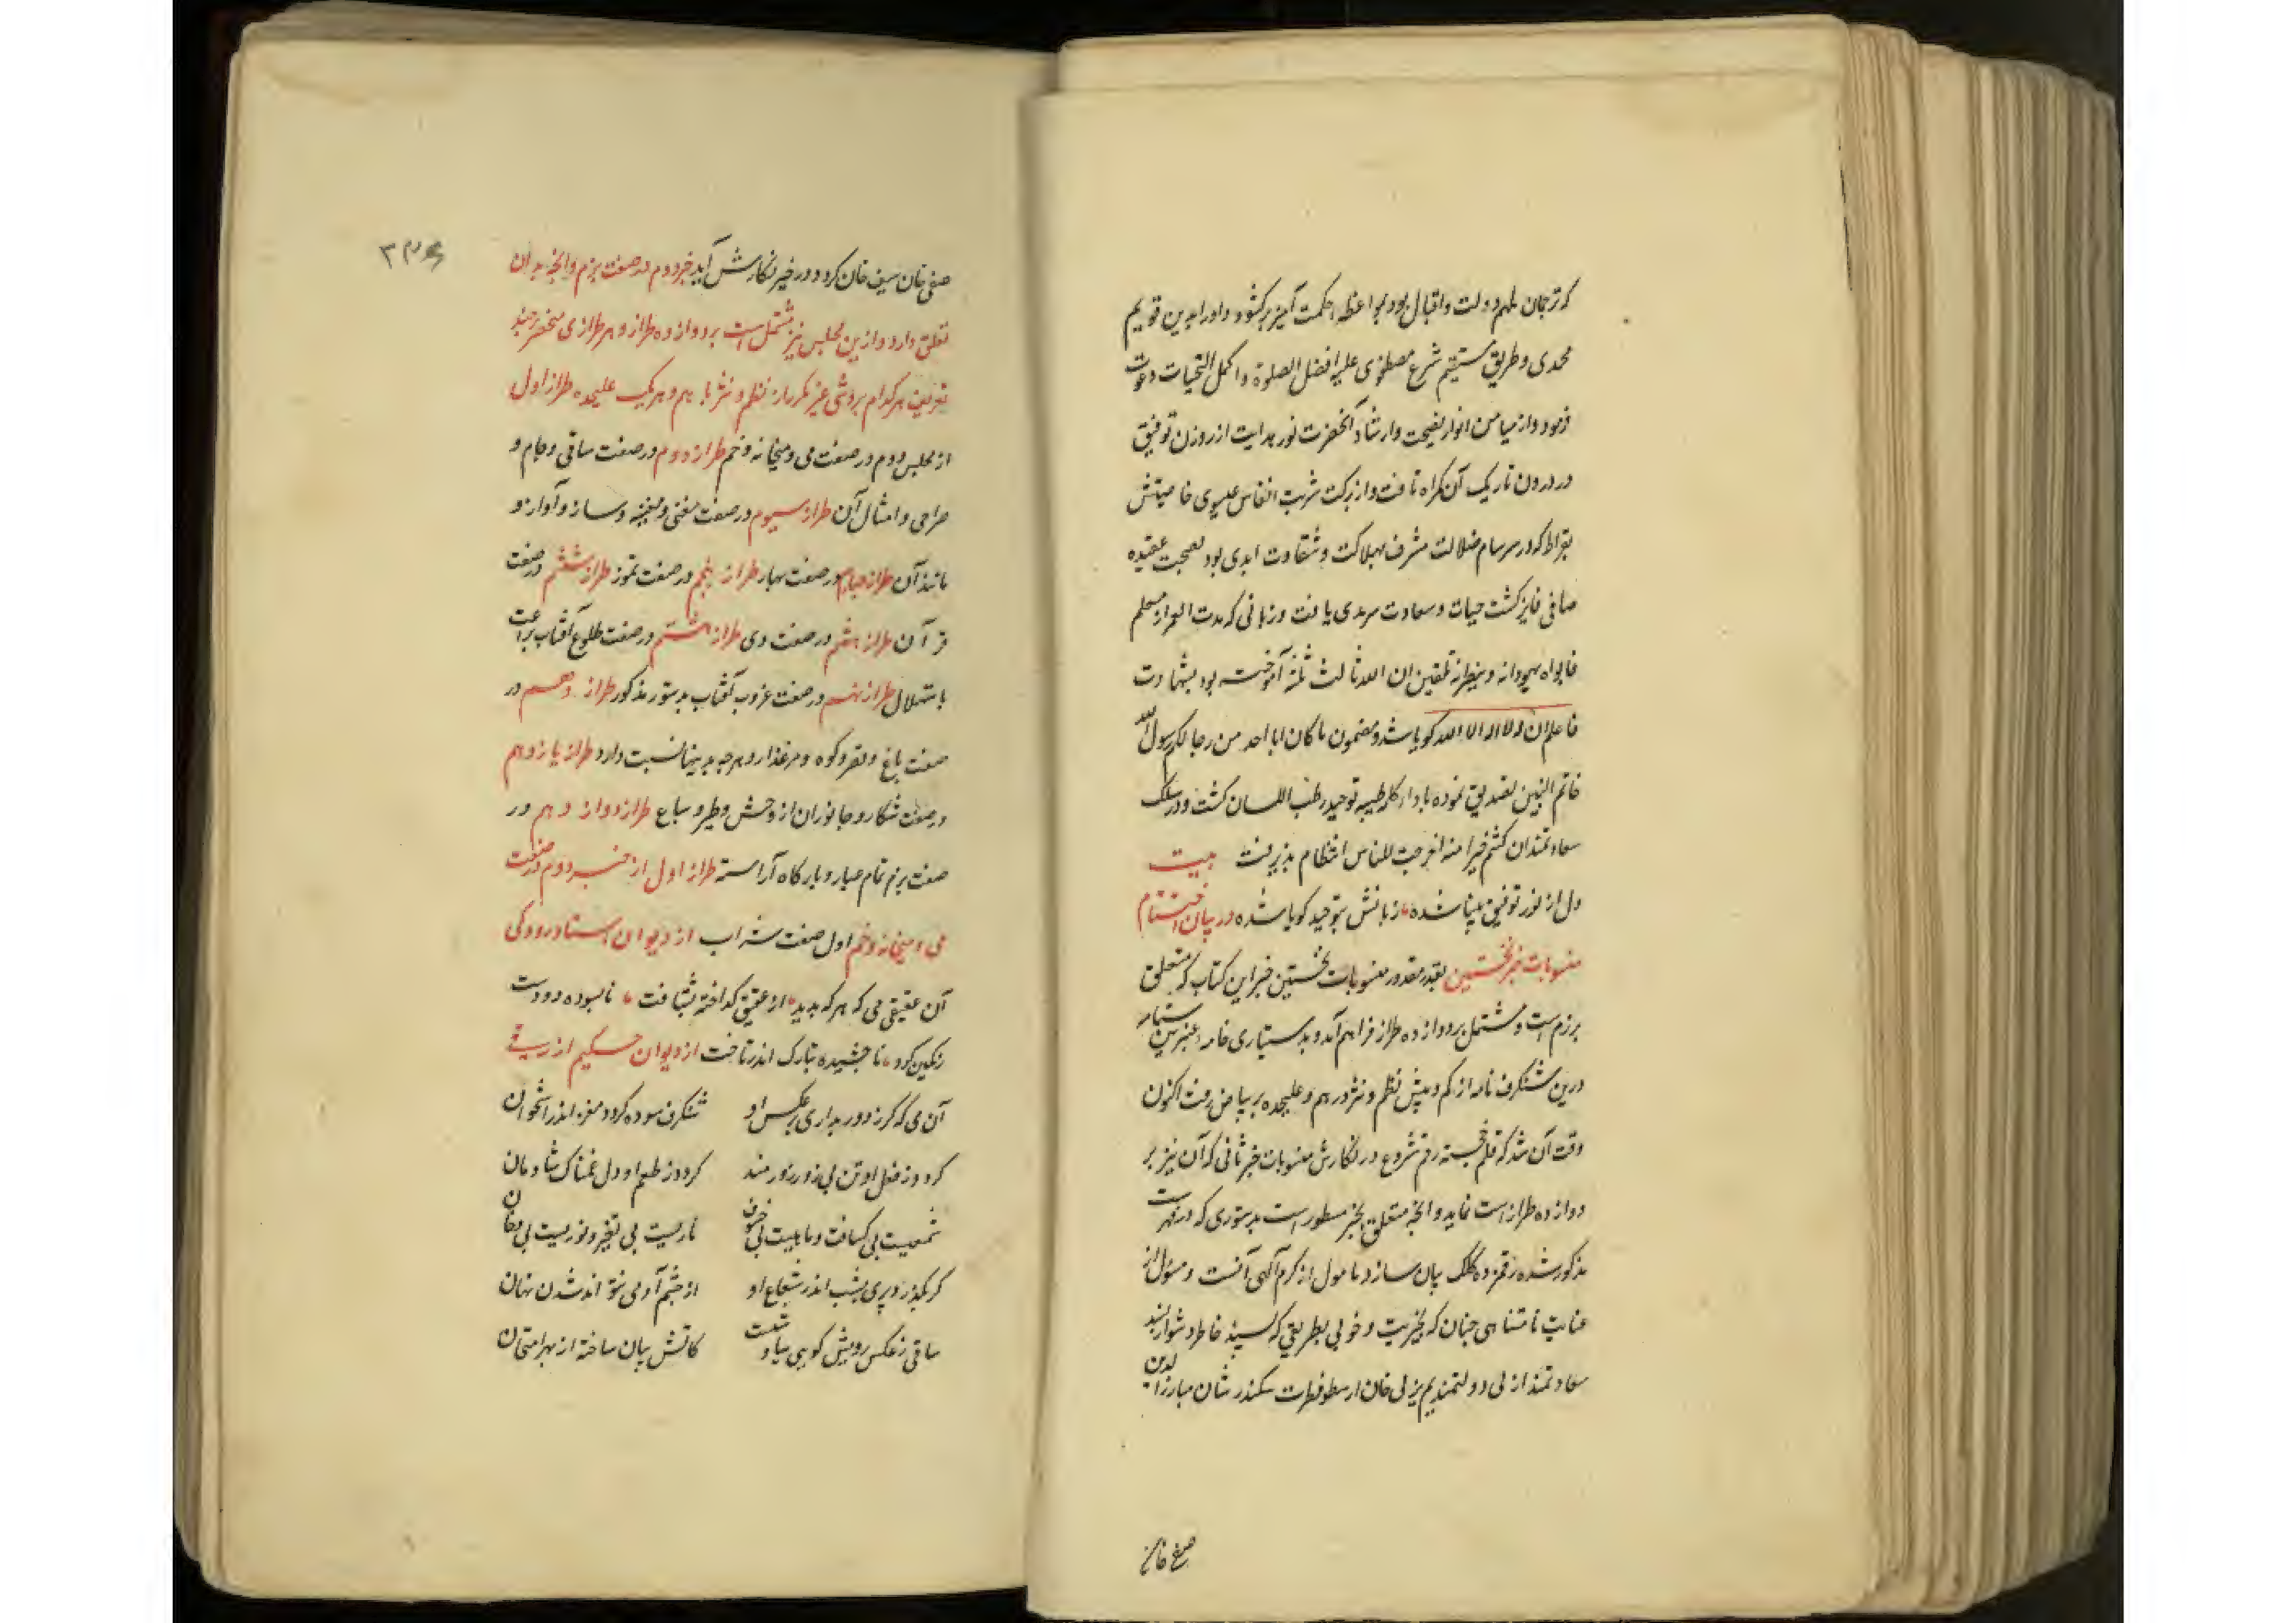 که ترجمان ملهم دولت و اقبال بود بمواعظه حکمت آمیز برکشود و او را بدین قویم
محمدی و طریق مستقیم شرع مصطفوی علیه افضل الصلوة و اکمل التحیات دعوت
فرمود و از میامن انوار نصیحت و ارشاد آنحضرت نور هدایت از روزن توفیق
در درون تاریک آن کمراه تافت و از برکت شربت انفاس عیسوی خاصیتش
بقراط که در سرسام ضلالت مشرف بهلاکت و شقاوت ابدی بود بصحبت عقیده
صافی فایز کشت حیات و سعادت سرمدی یافت و زبانی که مدت العمر از معلم
فابواه یهودانه و ینصرانه تلقین ان الله ثالث ثلثه آموخته بود بشهادت
فاعلم انه لا اله الا الله کویا شد و بمضمون ما کان ابا احد من رجالکم رسول الله
خاتم النبیین تصدیق نموده باداء کلمه طیبه توحید رطب اللسان کشت و در سلک
سعادتمندان کنتم خیر امة اخرجت للناس انتظام پذیرفت بیت
دل از نور توفیق بینا شده زبانش بتوحید کویا شده در بیان اختتام
منسوبات خبر نخستین بقدر مقدور منسوبات نخستین خبر این کتاب که متعلق
برزم است و مشتمل بر دوازده طراز فراهم آمد و بدستیاری خامه عنبرین
درین شنکرف نامه از کم و بیش نظم و نثر در هم و علیحده بر بیاض رفت اکنون
وقت آن شد که قلم خجسته رقم شروع در نکارش منسوبات خبر ثانی که آن نیز بر
دوازده طراز است نماید و آنچه متعلق بخبر مسطور است بدستوری که در فهرست
مذکور شده رقمزده کلک بیان سازد مامول از کرم آلهی آنست و مسؤل از
عنایت نامتناهی چنان که بخیریت و خوبی بطریقی که پسند خاطر دشوار پسند
سعادتمند ازلی دولتمند لم یزلی خان ارسطو فطرت سکندر شان مبارز الدین
صفی خان
۲۳۶
صفی خان سیف خان کردد در خیر نکارش آید خبر دوم در صفت بزم و آنچه بدان
تعلق دارد و ازین مجلس نیز مشتمل است بر دوازده طراز و هر طرازی منحصر چند
تعریف هر کدام بروشی غیر مکرر از نظم و نثر با هم و هر یک علیحده طراز اول
از مجلس دوم در صفت می و میخانه و خم طراز دوم در صفت ساقی و جام و
صراحی و امثال آن طراز سیوم در صفت مغنی و مغنیه و ساز و آواز و
مانند آن طراز چهارم در صفت بهار طراز پنجم در صفت تموز طراز ششم در صفت
خزان طراز هفتم در صفت دی طراز هشتم در صفت طلوع آفتاب براعت
باستهلال طراز نهم در صفت غروب آفتاب بدستور مذکور طراز دهم در
صفت باغ و قصر و کوه و مرغزار و هرچه بدینها نسبت دارد طراز یازدهم
در صفت شکار و جانوران از وحش و طیر و سباع طراز دوازدهم در
صفت بزم تمام عیار و بارکاه آراسته طراز اول از خبر دوم در صفت
می و میخانه و خم اول صفت شراب از دیوان استاد رودکی
آن عقیقی می که هر که بدید از عقیق کداخته نشناخت نابسوده دو دست
رنکین کرد ناچشیده بتارک اندر تاخت از دیوان حکیم ازرقی
آن می که کر ز دور بداری ز عکس او شنکرف سوده کردد مغز اندر استخوان
کردد ز فعل او تن بی زور زورمند کردد ز طعم او دل غمناک شادمان
شمسیت بی کسافت و ماهیست بی خسوف ناریست بی تغیر و نوریست بی دخان
کر بکذرد پری بشب اندر شعاع او از چشم آدمی نتواند شدن نهان
ساقی ز عکس رویش کویی سیاوشت کاتش بیان ساخته از بهر امتحان